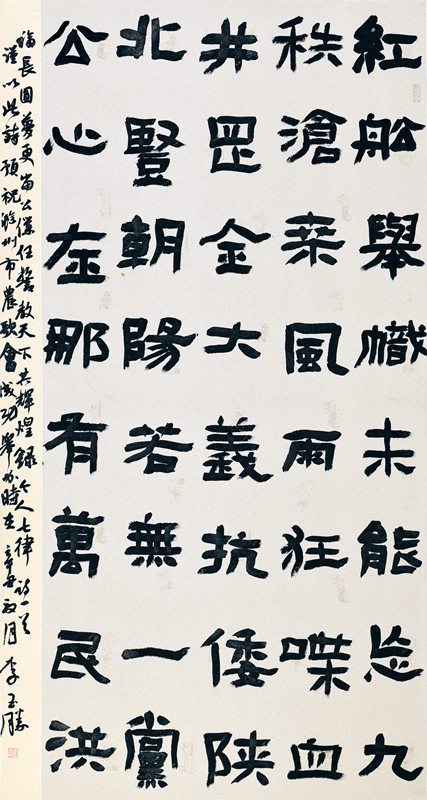 紅船舉幟未能忘九
秩滄桑風雨狂喋血
井罡金大義抗倭陝
北豎朝陽若無一黨
公心在那有萬民洪
福長圓夢更當公僕任誓教天下共輝煌錄今人七律詩一首
謹以此詩預祝滁州市農歌會成功舉辦時在辛丑月李玉勝